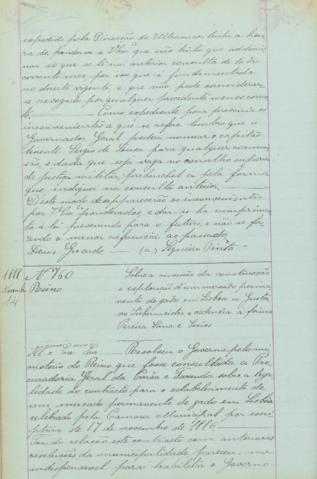 expedido pela Direcção do Ultramar tenho a hon
ra de ponderar a V. Exª que não tenho que addicio
nar ao que se lê na anterior consulta de 16 do
corrente mez por isso que é fundamentada
no direito vigente, e que não pode considerar
se revogado por qualquer precedente menos corren
te. Como expediente para prevenir os
inconvenientes a que se refere lembro que o
Governador Geral poderá nomear o capitão
tenente Sergio de Souza para qualquer commis
são, e dada que seja vaga no conselho superior
de justiça militar, preenchel-a pela forma
que indiquei na consulta anterior.
D'este modo desapparecerão os inconvenientes
por V. Exª ponderados, e dar-se-ha cumprimen
to á lei prevenindo para o futuro, e não se fa
zendo a menor referencia ao passado.
Deus Guarde (a) Sequeira Pinto
1888
14
Nº 760
Reino
Sobre a rescisão da construcção
e exploração d'um mercado perma
nente de gado em Lisboa
Pereira Lima e Socios
Resolveu o Governo pelo mi
nisterio do Reino que fosse consultada a Pro
curadoria Geral da Corôa e Fazenda sobre a lega
lidade do contracto para o estabelecimento de
um mercado permanente de gado em Lisboa
celebrado pela Camara Municipal por escri
ptura de 17 de novembro de 1886.
relação este contracto com anteriores
resoluções da municipalidade pareceu-me
indispensavel para habilitar o Governo